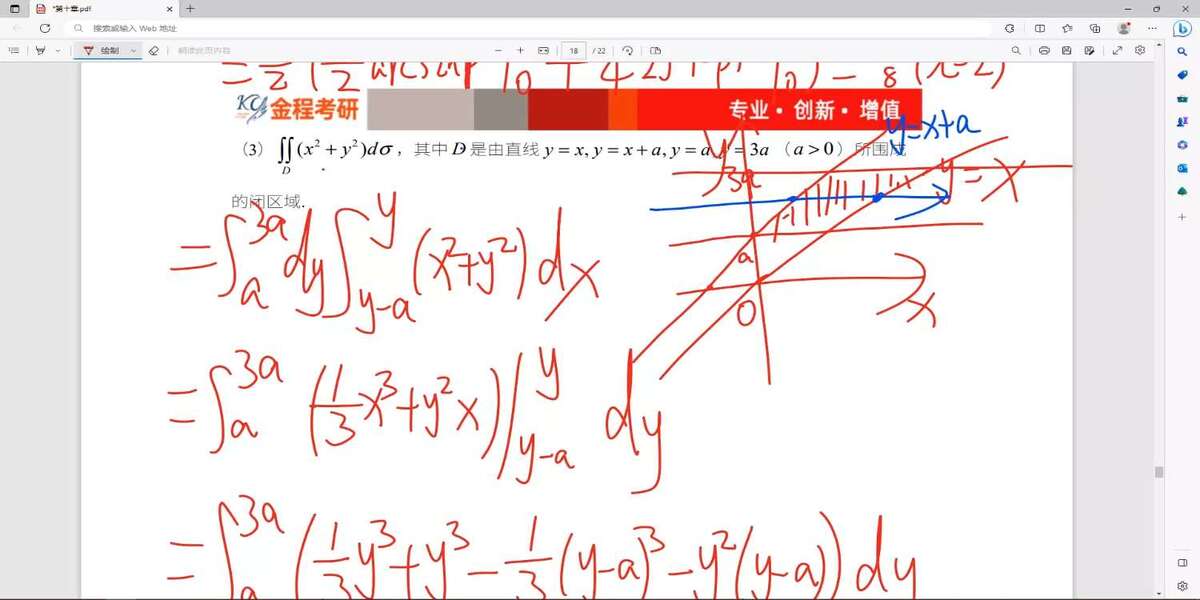 *第十章.pdf
搜索或输入 Web 地址
绘制
朗读此页内容
18 / 22
KY 金程考研
专业 · 创新 · 增值
（3）∬_D (x² + y²)dσ，其中 D 是由直线 y = x, y = x + a, y = a, y = 3a（a > 0）所围成
的闭区域.
y=x+a
3a
y=x
a
O
x
= ∫_a^{3a} dy ∫_{y-a}^{y} (x²+y²) dx
= ∫_a^{3a} (1/3 x³ + y²x) |_{y-a}^{y} dy
= ∫_a^{3a} (1/3 y³ + y³ - 1/3 (y-a)³ - y²(y-a)) dy